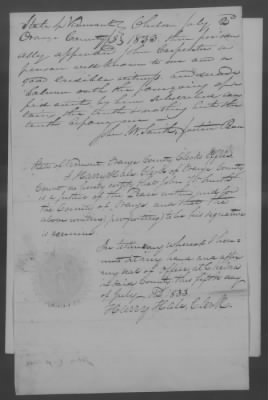 State of Vermont Chelsea July 5
Orange County SS 1833 then person
ally appeared John Carpenter a
person well known to me and a
good credible witness and made
Solemn oath the foregoing affi
davit by him subscribed con
tains the truth nothing but the
truth
John W Smith, Justice Peace
State of Vermont Orange County, Clerks Office
I Harry Hale, Clerk of Orange County
Court, do hereby certify that John W Smith
is a Justice of the Peace within and for
the County of Orange, and that the
above writing purporting to be his signature
is genuine
In testimony whereof I here
unto set my hand and affix
my seal of Office, at Chelsea
in said County this fifth day
of July AD 1833
Harry Hale, Clerk